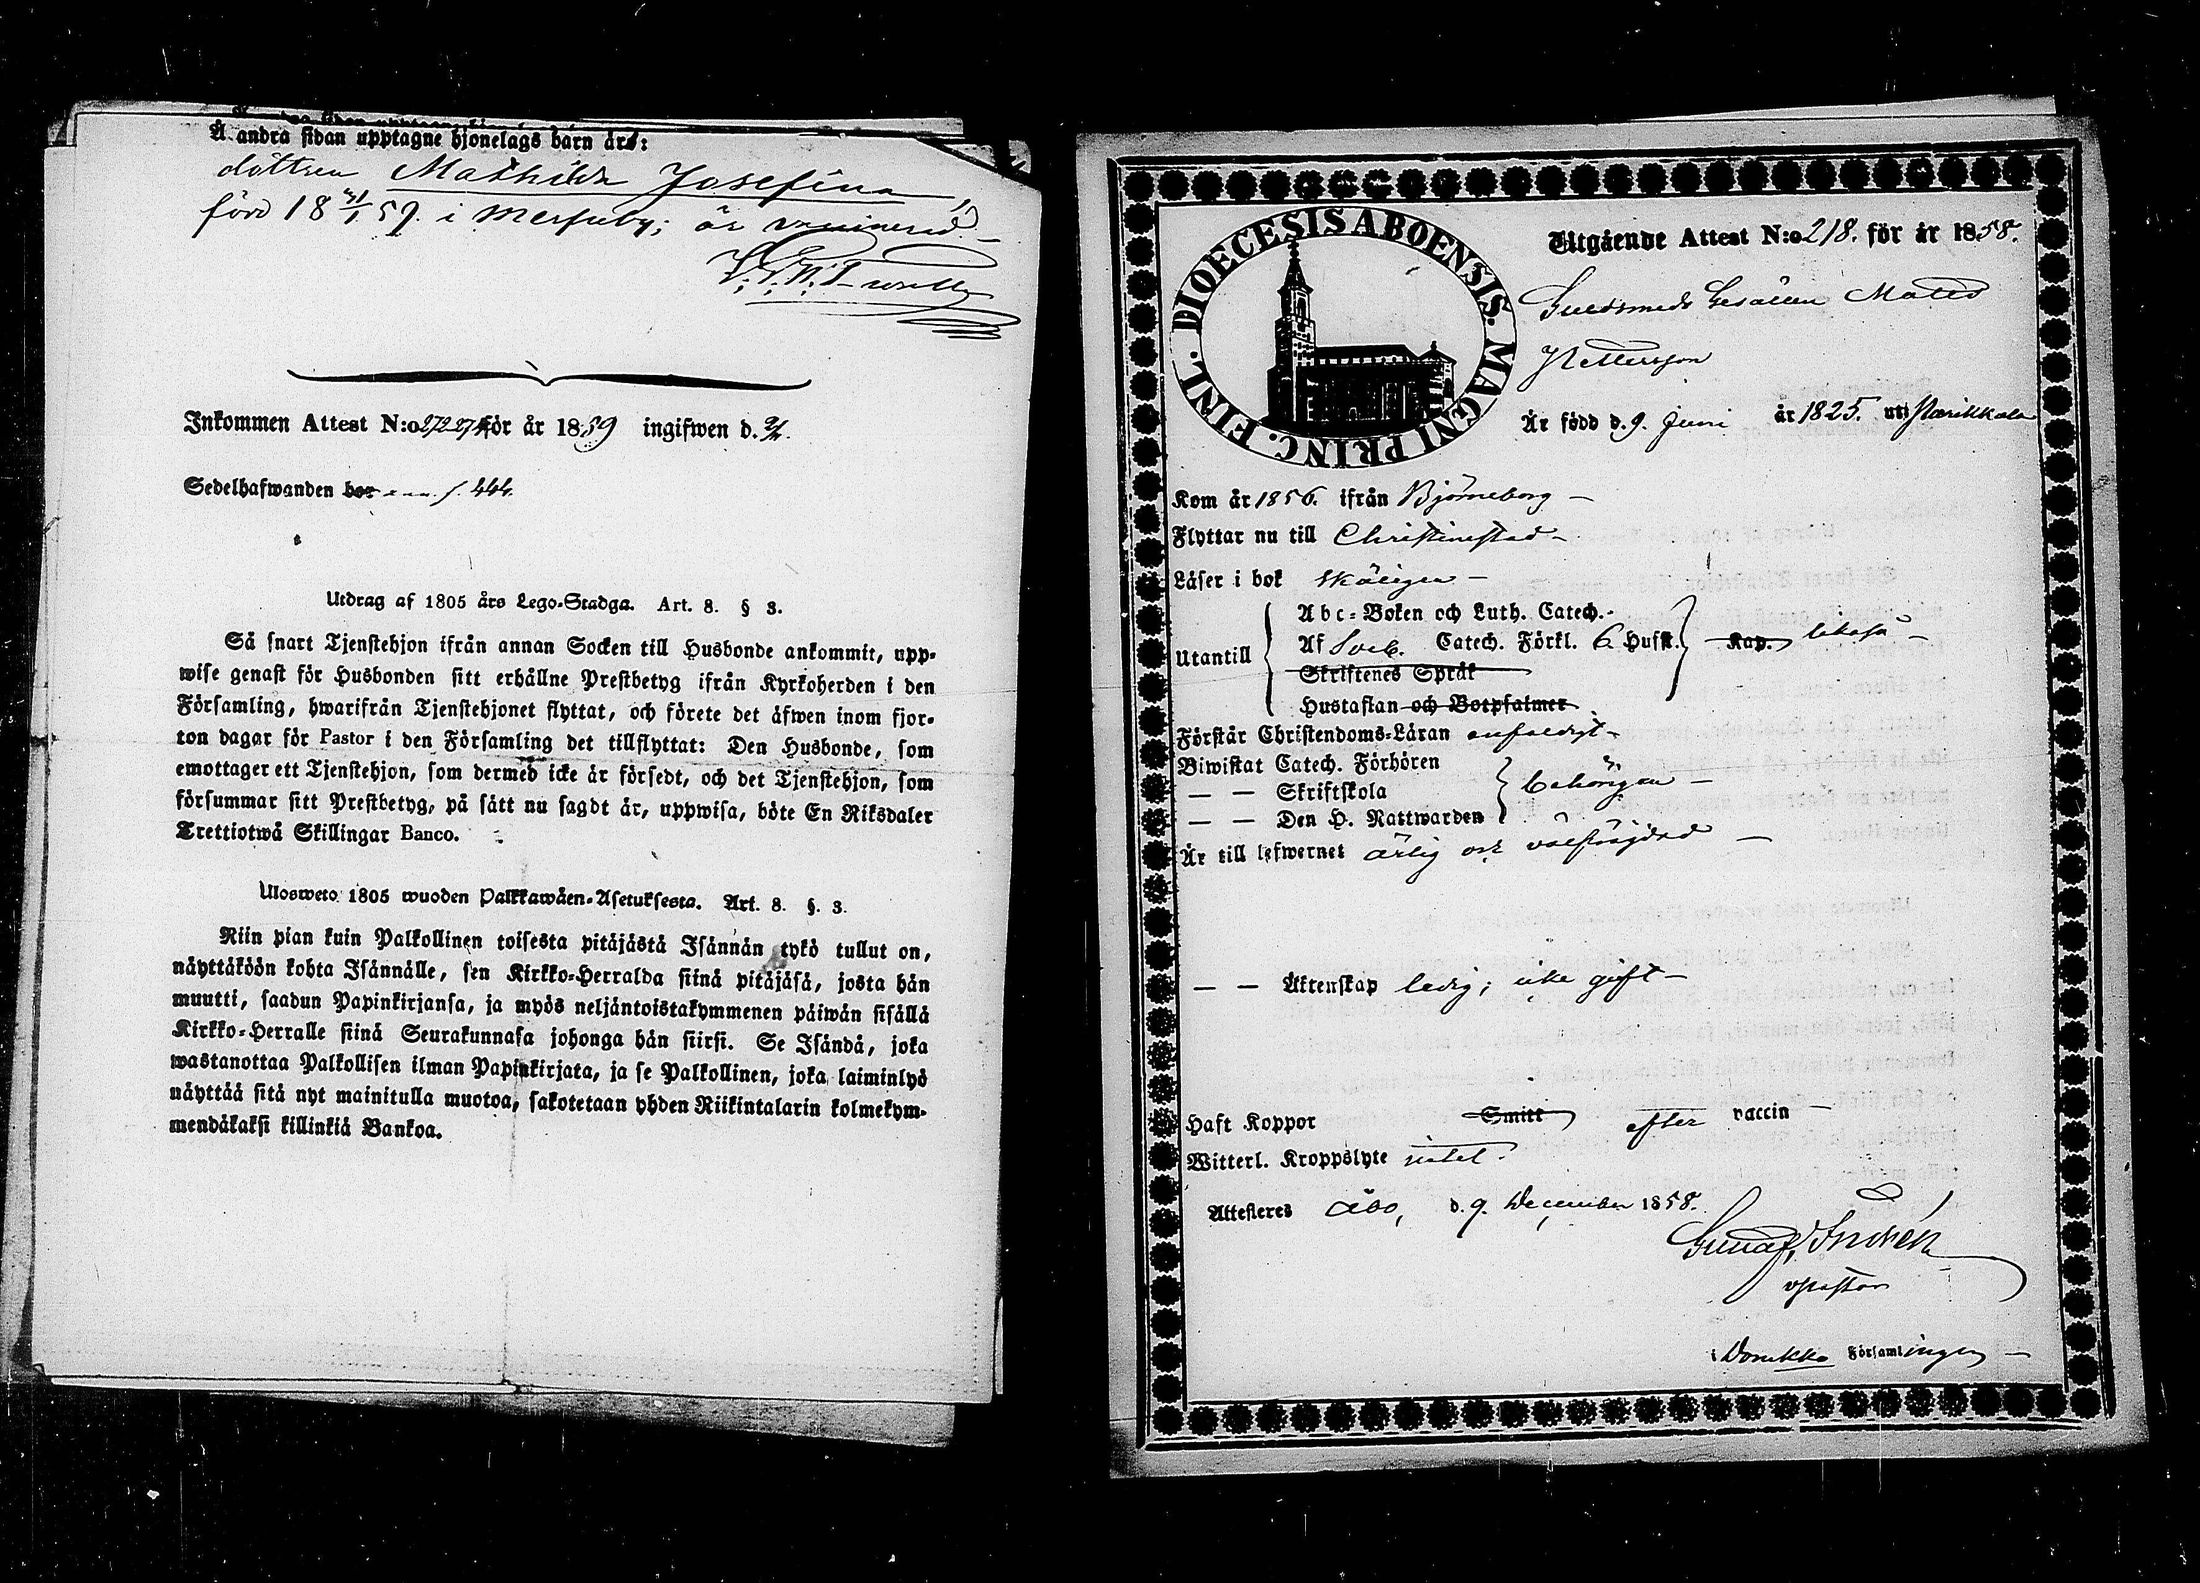 Å andra sidan upptagne hjonelags barn äro:
dottren Mathilda Josefina,
född 18 21/1 59. i Merfveby; är vaccinerad. –
Inkommen Attest N:o 272.274 för år 1859 ingifwen d.
Sedelhafwanden bor s. 444.
Utdrag af 1805 års Lego-Stadga. Art. 8. § 3.
Så snart Tjenstehjon ifrån annan Socken till Husbonde ankommit, upp-
wise genast för Husbonden sitt erhållne Prestbetyg ifrån Kyrkoherden i den
Församling, hwarifrån Tjenstehjonet flyttat, och förete det äfwen inom fjor-
ton dagar för Pastor i den Församling det tillflyttat: Den Husbonde, som
emottager ett Tjenstehjon, som dermed icke är försedt, och det Tjenstehjon, som
försummar sitt Prestbetyg, på sätt nu sagdt är, uppwisa, böte En Riksdaler
Trettiotwå Skillingar Banco.
Ulosweto 1805 wuoden Palkkawäen-Asetuksesta. Art. 8. §. 3.
Niin pian kuin Palkollinen toisesta pitäjästä Isännän tykö tullut on,
näyttäköön kohta Isännälle, sen Kirkko-Herralda siinä pitäjäsä, josta hän
muutti, saadun Papinkirjansa, ja myös neljäntoistakymmenen päiwän sisällä
Kirkko-Herralle siinä Seurakunnasa johonga hän siirsi. Se Isändä, joka
wastanottaa Palkollisen ilman Papinkirjata, ja se Palkollinen, joka laiminlyö
näyttää sitä nyt mainitulla muotoa, sakotetaan yhden Riikintalarin kolmekym-
mendäkaksi killinkiä Bankoa.
DIOECESIS ABOENSIS. MAGNI PRINC. FINL.
Utgående Attest N:o 218. för år 1858.
Guldsmeds Gesällen Mats
Pettersson
Är född d. 9. Juni år 1825. uti Parikkala
Kom år 1856. ifrån Björneborg –
Flyttar nu till Christinestad –
Läser i bok skäligen –
Utantill
Abc-Boken och Luth. Catech.
Af Sveb. Catech. Förkl. 6. Hufst. Kap. likaså –
Skriftenes Språk
Hustaflan och Botpsalmer
Förstår Christendoms-Läran enfaldigt –
Biwistat Catech. Förhören
— — Skriftskola behörigen –
— — Den H. Nattwarden
Är till lefwernet ärlig och välfrägdad –
— — Äktenskap ledig; icke gift –
Haft Koppor Smitt efter vaccin –
Witterl. Kroppslyte intet.
Attesteres Åbo, d. 9. December 1858.
Gustaf Indrén
v. pastor
i Domkyrko Församlingen –